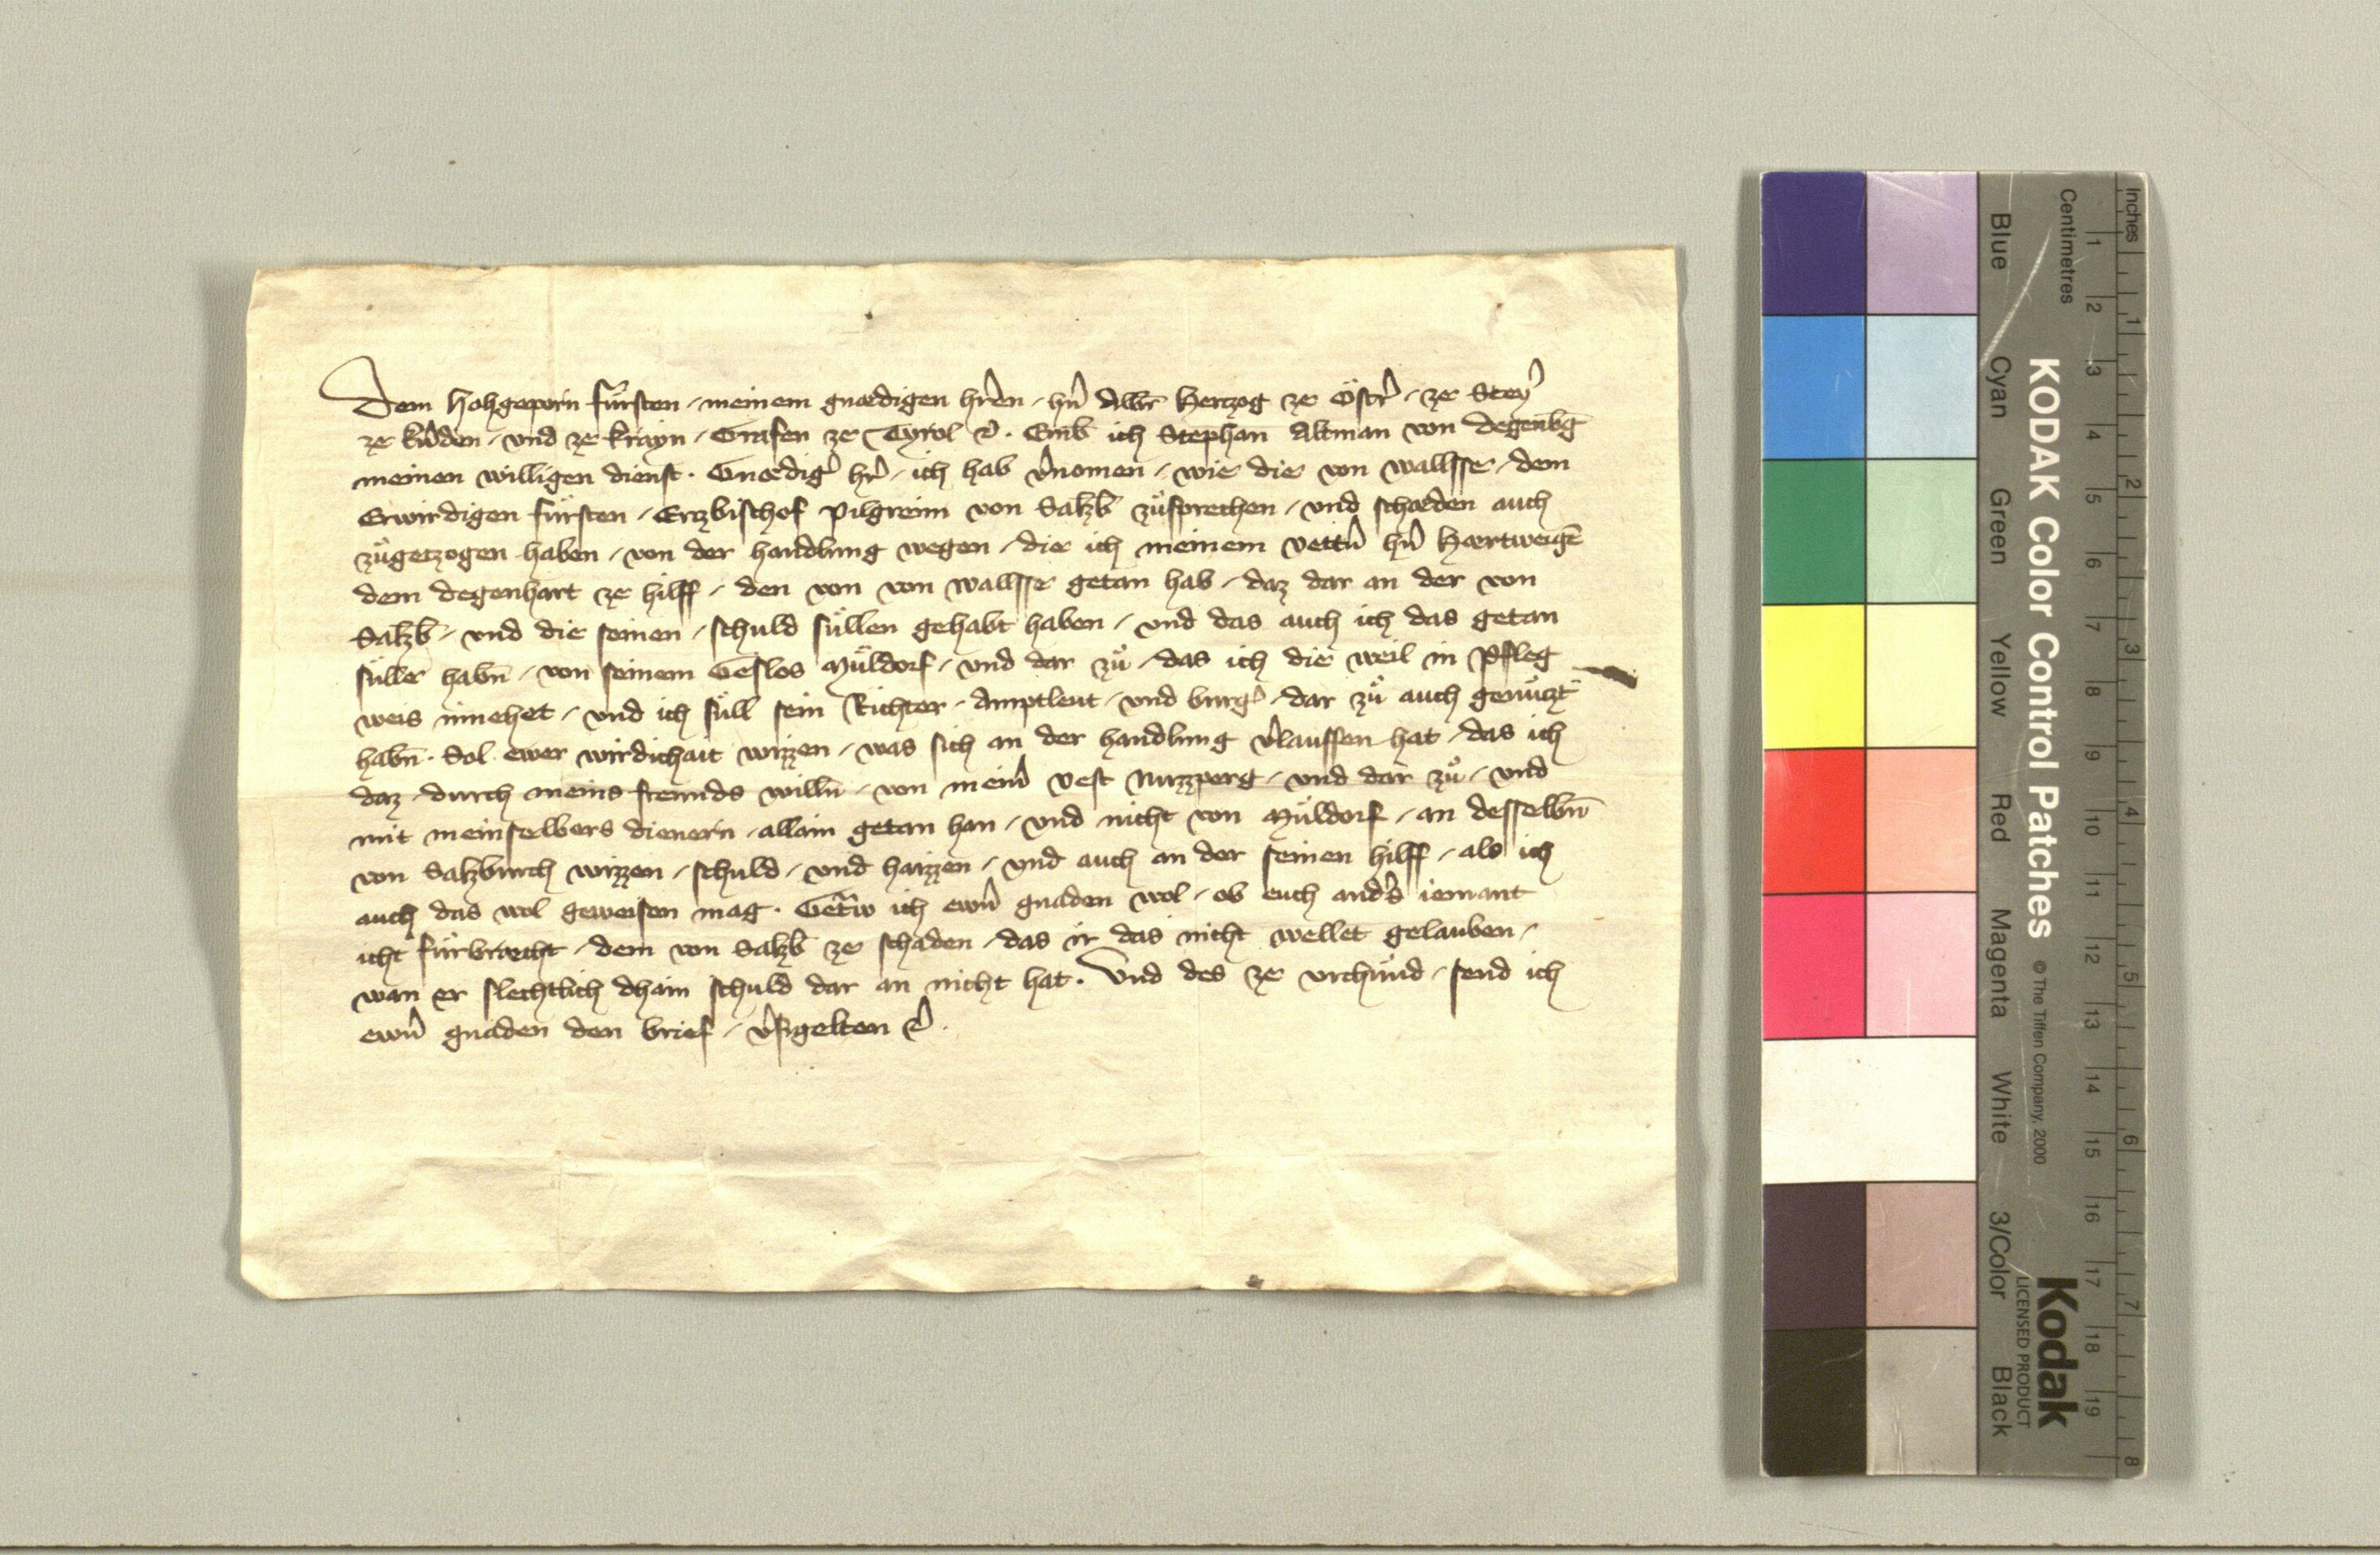 Dem Hohgeporn fürsten / meinem gnædigen hr̃en / hn̉ Albr̃ Hertzog ze Östr̉ / ze Steỷ
ze kn̉den / vnd ze krayn / Grafen ze Tyrol ꝛc̉ . Enb̃ ich Stephan Altman von Degenbg̃
meinen willigen dienst . Gnædig̉ hr̉ / ich hab v̉nomen / wie die von wallsse / dem
Erwirdigen fürsten / Ertzbischof pilgreim von Salzb̃ zůsprechen / vnd schæden auch
zůgetzogen haben / von der handlung wegen / die ich meinem vettn̉ hn̉ Hærtweigē
dem degenhart ze hilff / den von von wallsse getan hab / daz dar an der von
Salzb̃ / vnd die seinen / schuld süllen gehabt haben / vnd das auch ich das getan
sülle habn̄ / von seinem Geslos Müldorf / vnd dar zů / das ich die weil in Pfleg
weis innehet / vnd ich süll sein Richter / Amptleut / vnd burg̉ / dar zů auch genützt
habn̄ . Sol ewer wirdichait wizzen / was sich an der handlung v̉lauffen hat / das ich
daz / durch meins freunds willn̄ / von mein̉ vest Nuzzperg / vnd dar zů / vnd
mit meinselbers dienern / allain getan han / vnd nicht von Müldorf / an desselbn̄
von Salzburch wizzen / schuld / vnd haizzen / vnd auch an der seinen hilff / als ich
auch das wol geweisen mag . Getr̃w ich ewn̉ gnaden wol / ob euch and̉s iemant
icht fürbræcht / dem von Salzb̃ ze schaden / das ir das nicht wellet gelauben /
wan er slechtlich dhain schuld dar an nicht hat . Vnd des ze vrchünd / send ich
ewn̉ gnaden den brief / v̉sigelten ꝛc̉ .
Inches
Centimetres
1 2 3 4 5 6 7 8
1 2 3 4 5 6 7 8 9 10 11 12 13 14 15 16 17 18 19
KODAK Color Control Patches
© The Tiffen Company, 2000
Kodak
LICENSED PRODUCT
Blue
Cyan
Green
Yellow
Red
Magenta
White
3/Color
Black